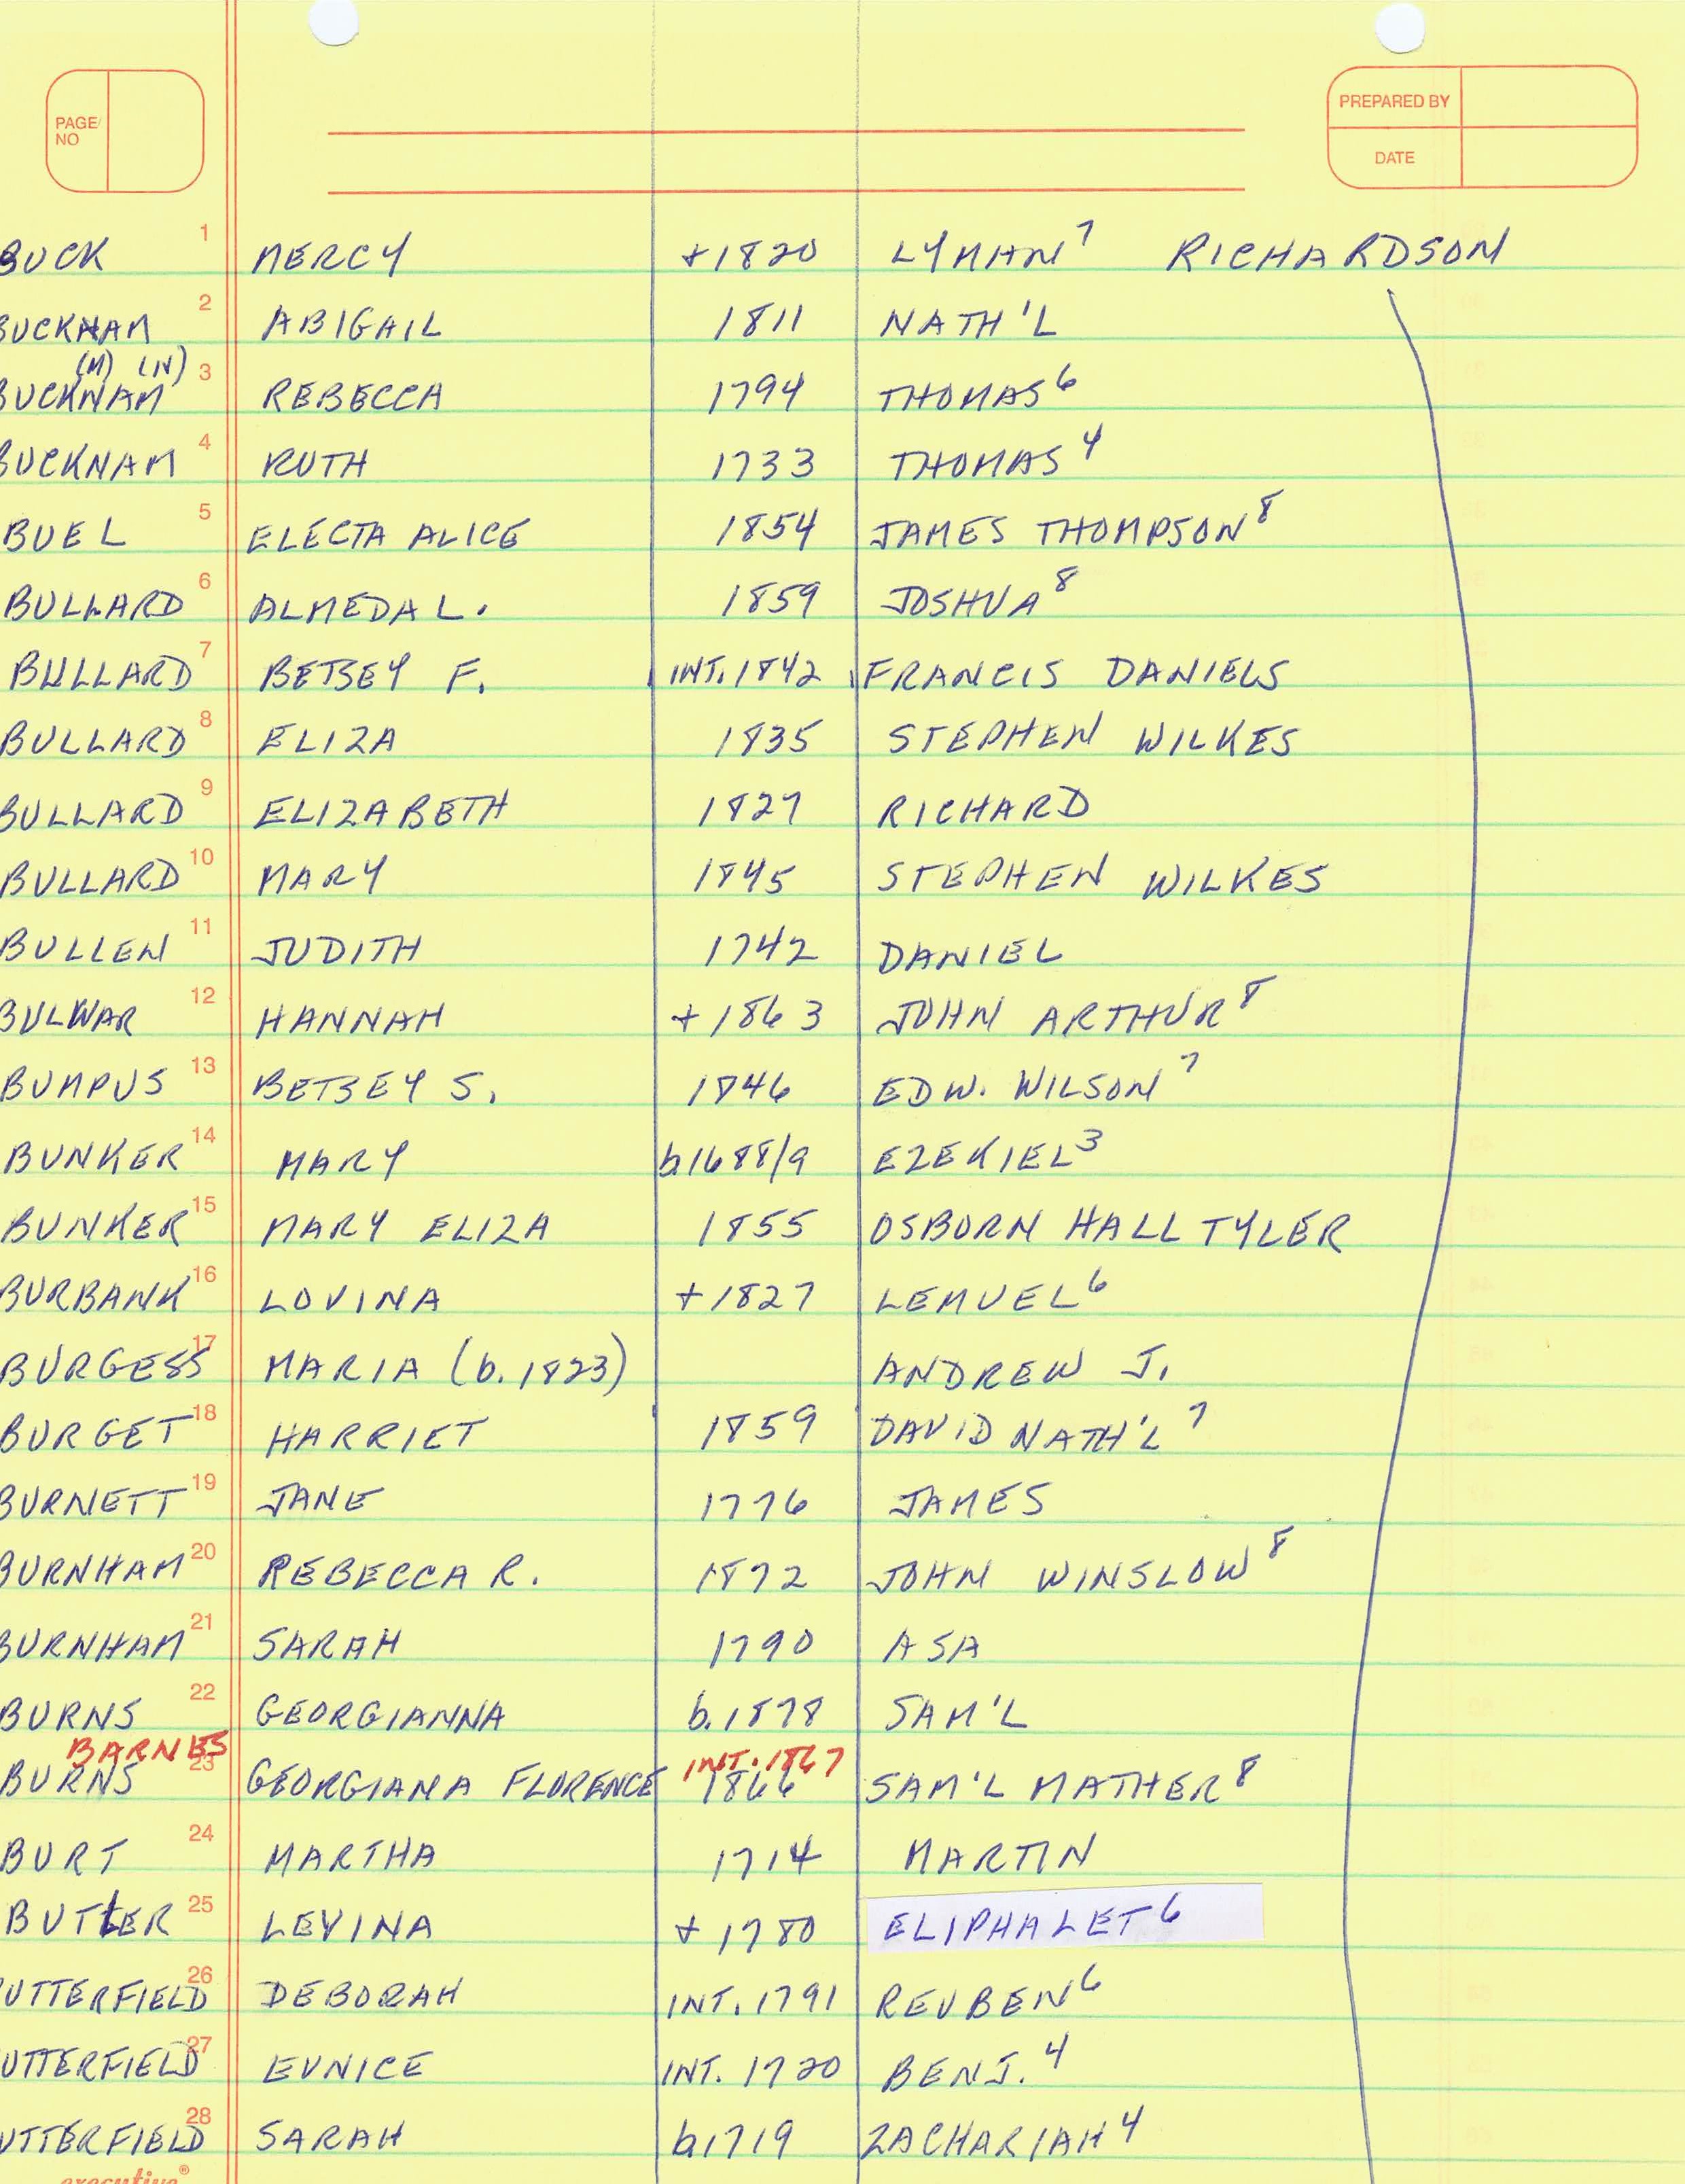 PAGE/ NO
PREPARED BY
DATE
1 BUCK MERCY +1820 LYMAN⁷ RICHARDSON
2 BUCKMAM ABIGAIL 1811 NATH'L
(M) (N)
3 BUCKNAM REBECCA 1794 THOMAS⁶
4 BUCKNAM RUTH 1733 THOMAS⁴
5 BUEL ELECTA ALICE 1854 JAMES THOMPSON⁸
6 BULLARD ALMEDA L. 1859 JOSHUA⁸
7 BULLARD BETSEY F. INT. 1842 FRANCIS DANIELS
8 BULLARD ELIZA 1835 STEPHEN WILKES
9 BULLARD ELIZABETH 1827 RICHARD
10 BULLARD MARY 1845 STEPHEN WILKES
11 BULLEN JUDITH 1742 DANIEL
12 BULWAR HANNAH +1863 JOHN ARTHUR⁸
13 BUMPUS BETSEY S. 1846 EDW. WILSON⁷
14 BUNKER MARY b1688/9 EZEKIEL³
15 BUNKER MARY ELIZA 1855 OSBORN HALL TYLER
16 BURBANK LOVINA +1827 LEMUEL⁶
17 BURGESS MARIA (b. 1823) ANDREW J.
18 BURGET HARRIET 1859 DAVID NATH'L⁷
19 BURNETT JANE 1776 JAMES
20 BURNHAM REBECCA R. 1872 JOHN WINSLOW⁸
21 BURNHAM SARAH 1790 ASA
22 BURNS GEORGIANNA b. 1878 SAM'L
BARNES INT. 1867
23 BURNS GEORGIANA FLORENCE 1866 SAM'L MATHER⁸
24 BURT MARTHA 1714 MARTIN
25 BUTLER LEVINA +1780 ELIPHALET⁶
26 UTTERFIELD DEBORAH INT. 1791 REUBEN⁶
27 UTTERFIELD EUNICE INT. 1720 BENJ.⁴
28 UTTERFIELD SARAH b1719 ZACHARIAH⁴
executive®